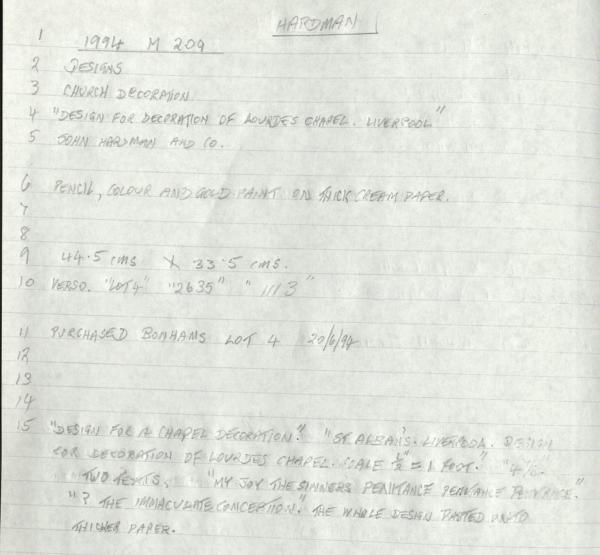 HARDMAN
1 1994 M 209
2 DESIGNS
3 CHURCH DECORATION
4 "DESIGN FOR DECORATION OF LOURDES CHAPEL. LIVERPOOL"
5 JOHN HARDMAN AND CO.
6 PENCIL, COLOUR AND GOLD PAINT ON THICK CREAM PAPER.
7
8
9 44.5 cms X 33.5 cms.
10 VERSO. "LOT 4" "2635" " 1113 "
11 PURCHASED BONHAMS LOT 4 20/6/94
12
13
14
15 "DESIGN FOR A CHAPEL DECORATION." "ST ALBAN'S. LIVERPOOL. DESIGN
FOR DECORATION OF LOURDES CHAPEL. SCALE ½" = 1 FOOT."
TWO TEXTS. "MY JOY THE SINNERS PENITANCE PENITANCE
"? THE IMMACULATE CONCEPTION." THE WHOLE DESIGN PASTED ONTO
THICKER PAPER.